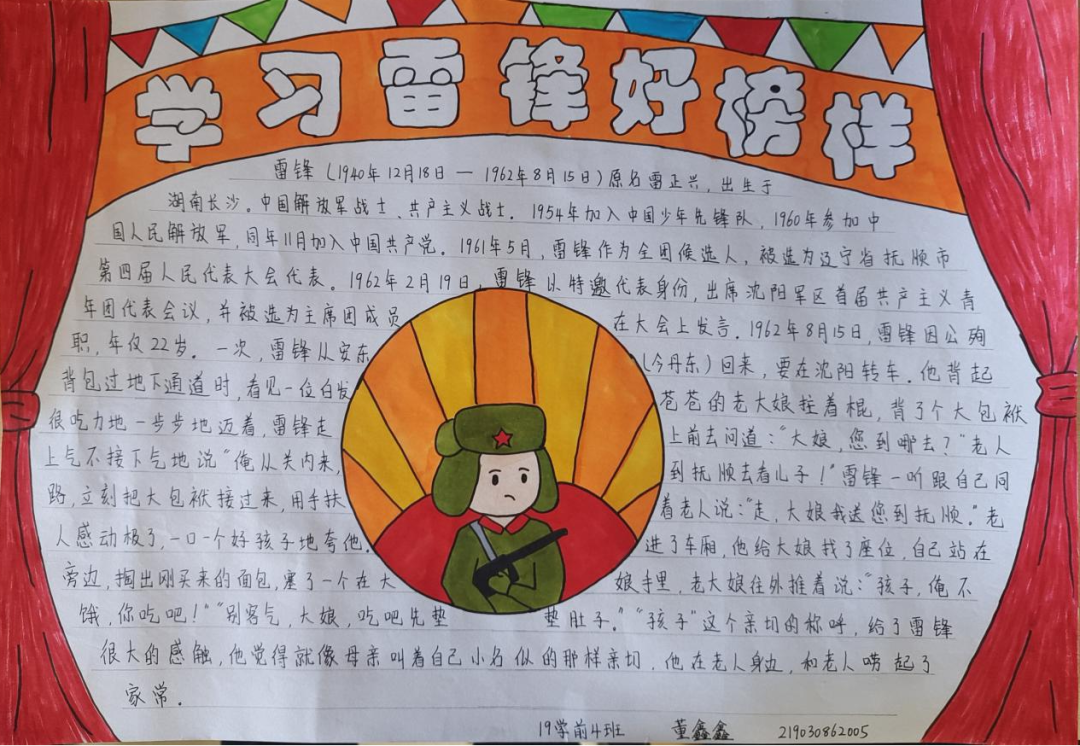 学习雷锋好榜样
雷锋（1940年12月18日 — 1962年8月15日）原名雷正兴，出生于
湖南长沙。中国解放军战士、共产主义战士。1954年加入中国少年先锋队，1960年参加中
国人民解放军，同年11月加入中国共产党。1961年5月，雷锋作为全团候选人，被选为辽宁省抚顺市
第四届人民代表大会代表。1962年2月19日，雷锋以特邀代表身份，出席沈阳军区首届共产主义青
年团代表会议，并被选为主席团成员 在大会上发言。1962年8月15日，雷锋因公殉
职，年仅22岁。一次，雷锋从安东 （今丹东）回来，要在沈阳转车。他背起
背包过地下通道时，看见一位白发 苍苍的老大娘拄着棍，背了个大包袱
很吃力地一步步地迈着，雷锋走 上前去问道：“大娘，您到哪去？”老人
上气不接下气地说“俺从关内来， 到抚顺去看儿子！”雷锋一听跟自己同
路，立刻把大包袱接过来，用手扶 着老人说：“走，大娘我送您到抚顺。”老
人感动极了，一口一个好孩子地夸他。 进了车厢，他给大娘找了座位，自己站在
旁边，掏出刚买来的面包，塞了一个在大 娘手里，老大娘往外推着说：“孩子，俺不
饿，你吃吧！”“别客气，大娘，吃吧先垫 垫肚子。”“孩子”这个亲切的称呼，给了雷锋
很大的感触，他觉得就像母亲叫着自己小名似的那样亲切。他在老人身边，和老人唠起了
家常。
19学前4班 董鑫鑫 219030862005